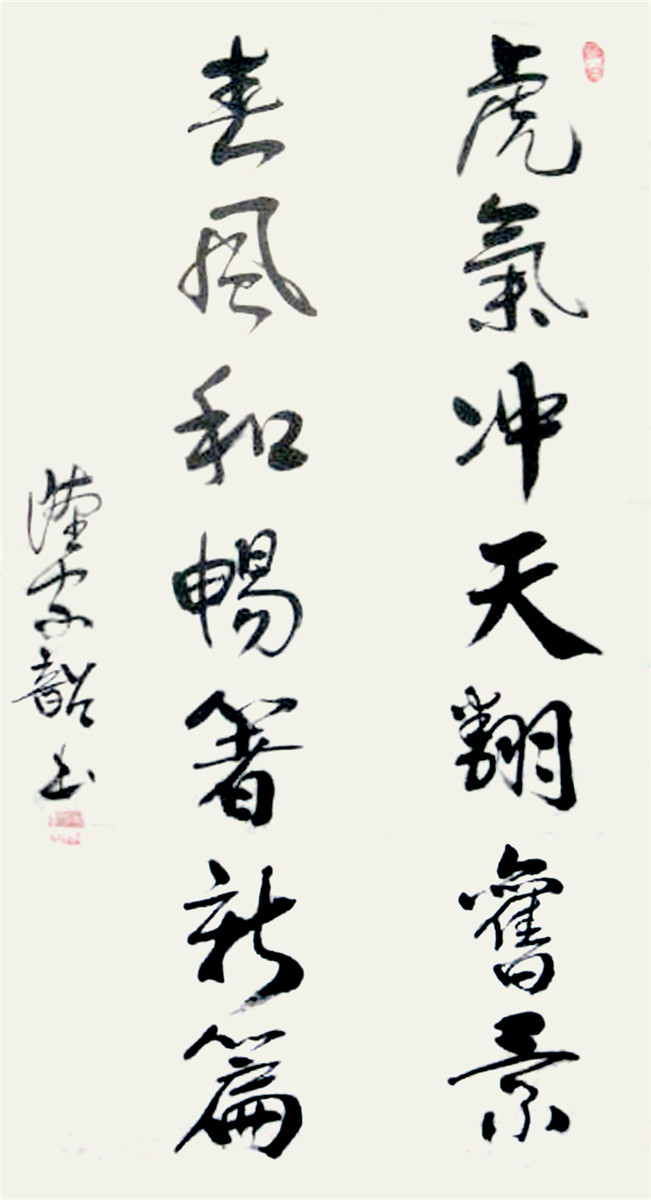 虎氣冲天翻舊景
春風和暢箸新篇
韶书